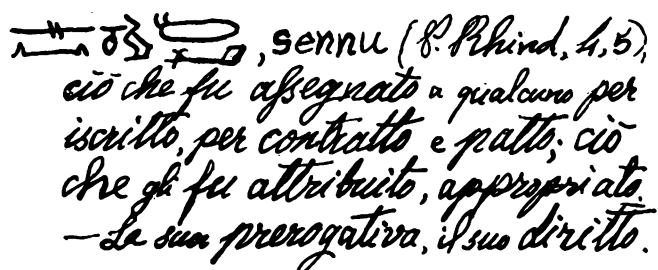 , sennu (P. Rhind, 4, 5),
ciò che fu assegnato a qualcuno per
iscritto, per contratto e patto; ciò
che gli fu attribuito, appropriato.
— La sua prerogativa, il suo diritto.